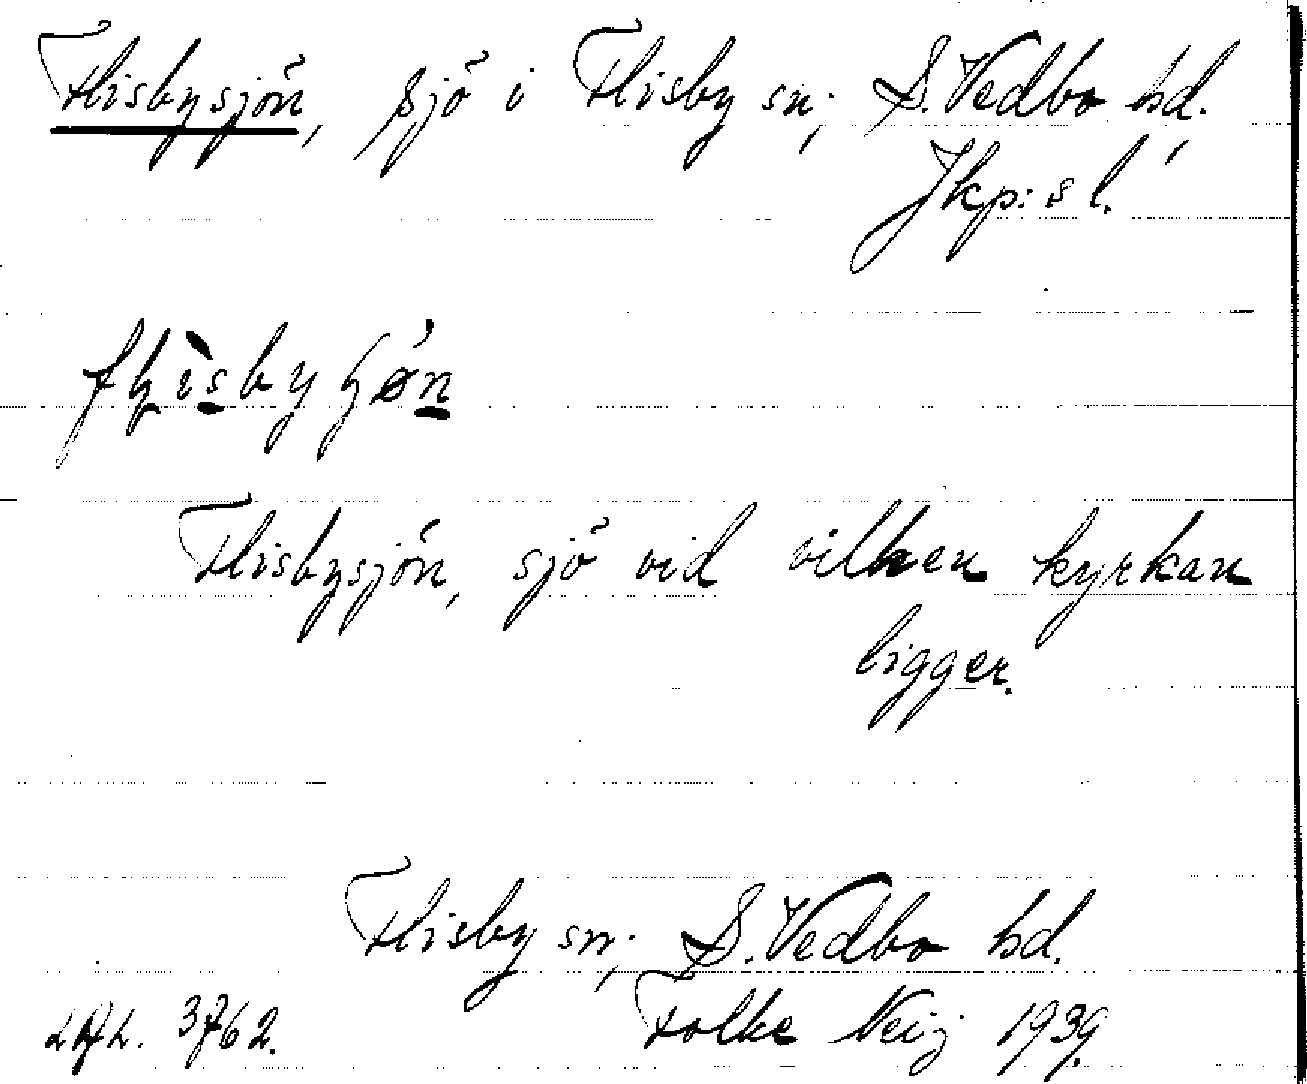 Flisbysjön, sjö i Flisby sn, S. Vedbo hd.,
Jkp:s l.
Flisbysjön, sjö vid vilken kyrkan
ligger.
Flisby sn, S. Vedbo hd.
Folke Neij 1939.